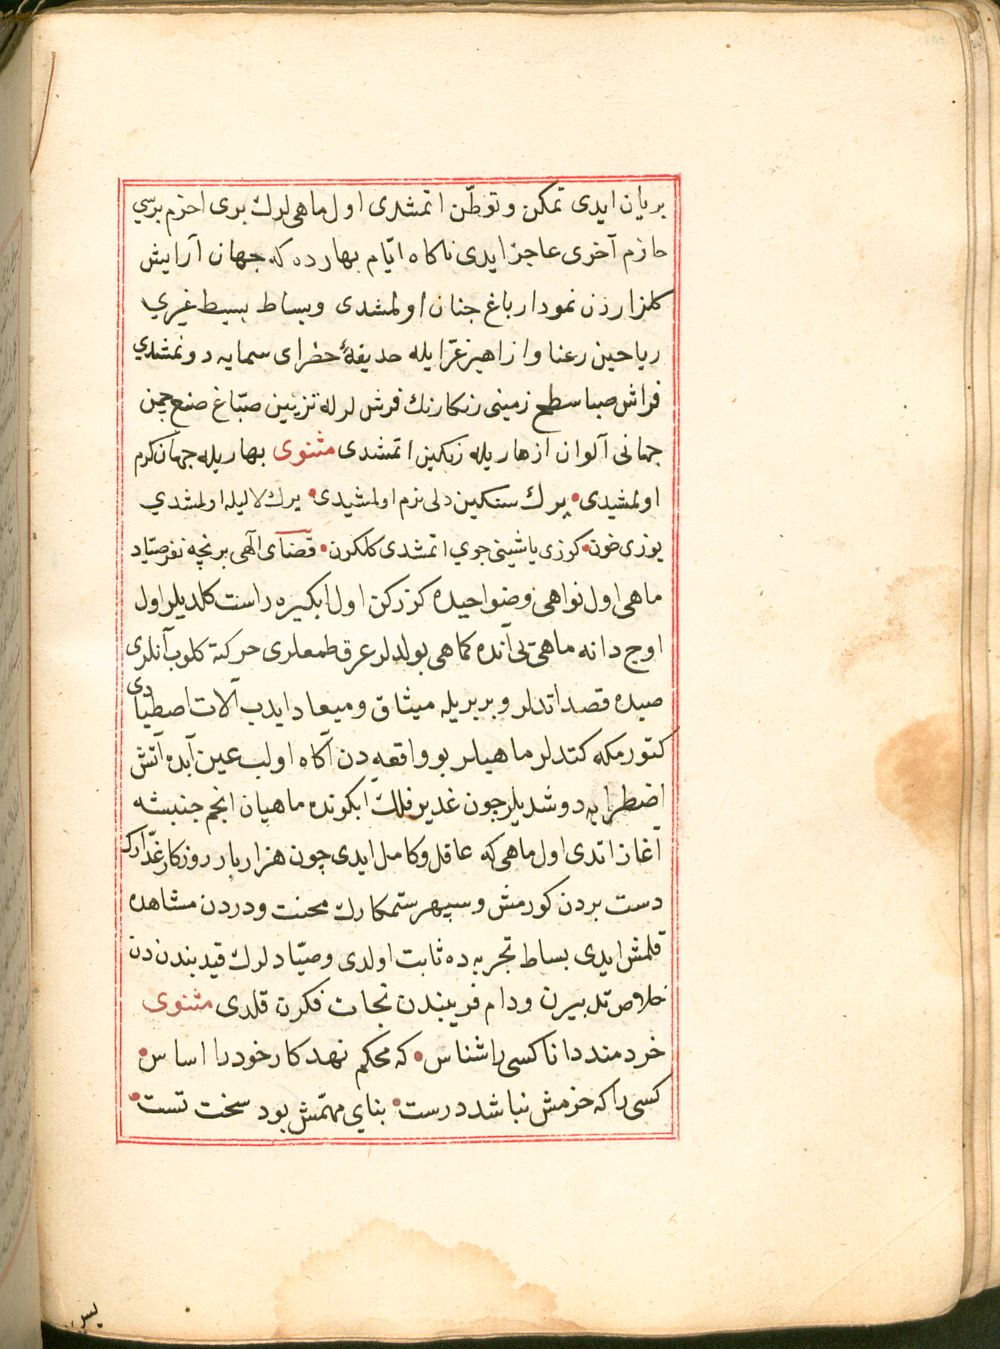 بريان ايدى تمكن و توطّن اتمشدى اول ماهى لرك برى احزم برسي
حازم آخرى عاجز ايدى ناكاه ايّام بهارده كه جهان آرايش
كلزاردن نمودار باغ جنان اولمشدى وبساط بسيط غيري
رياحين رعنا وازاهير غرّايله حديقهٔ خضراى سمايه دونمشدي
فراش صبا سطح زمينى رنكارنك فرش لرله تزيين صبّاغ صنع چمن
جهانى آلوان ازهاريله رنكين اتمشدى مثنوى بهاريله جهان كرم
اولمشيدى • يرك سنكين دلى نرم اولمشيدى • يرك لاليله اولمشدي
يوزى خون • كوزى ياشينى جوي اتمشدى كلكون • قضآى الٓهى برنچه نفر صيّاد
ماهى اول نواهى وضواحيده كزركن اول ابكيره راست كلديلر اول
اوج دانه ماهى يى آنده كماهى بولدلر عرق طمعلرى حركته كلوب آنلرى
صيده قصد اتدلر و بربريله ميثاق و ميعاد ايدب آلات اصطيادى
كتورمكه كتدلر ماهيلر بو واقعه دن آكاه اولب عين آبده آتش
اضطرابه دوشديلر چون غدير فلك ابكونده ماهيان انجم جنبشه
آغاز اتدى اول ماهى كه عاقل وكامل ايدى چون هزار بار روزكار غدّارك
دست بردن كورمش و سپهر ستمكارك محنت ودردن مشاهده
قلمش ايدى بساط تجربه ده ثابت اولدى و صيّادلرك قيد بندن دن
خلاص تدبيرن ودام فريبندن نجات فكرت قلدى مثنوى
خردمند دانا كسى را شناس • كه محكم نهد كار خود را اساس •
كسى را كه حزمش نباشد درست • بناي مهمّش بود سخت تست •
يس